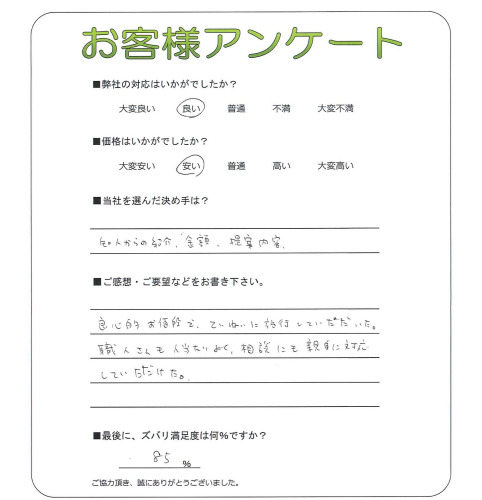 お客様アンケート
■弊社の対応はいかがでしたか？
大変良い 良い 普通 不満 大変不満
■価格はいかがでしたか？
大変安い 安い 普通 高い 大変高い
■当社を選んだ決め手は？
知人からの紹介、金額、提案内容。
■ご感想・ご要望などをお書き下さい。
良心的お値段で、ていねいに施行していただいた。
職人さんも人当たりよく、相談にも親身に対応
していただけた。
■最後に、ズバリ満足度は何％ですか？
85 ％
ご協力頂き、誠にありがとうございました。